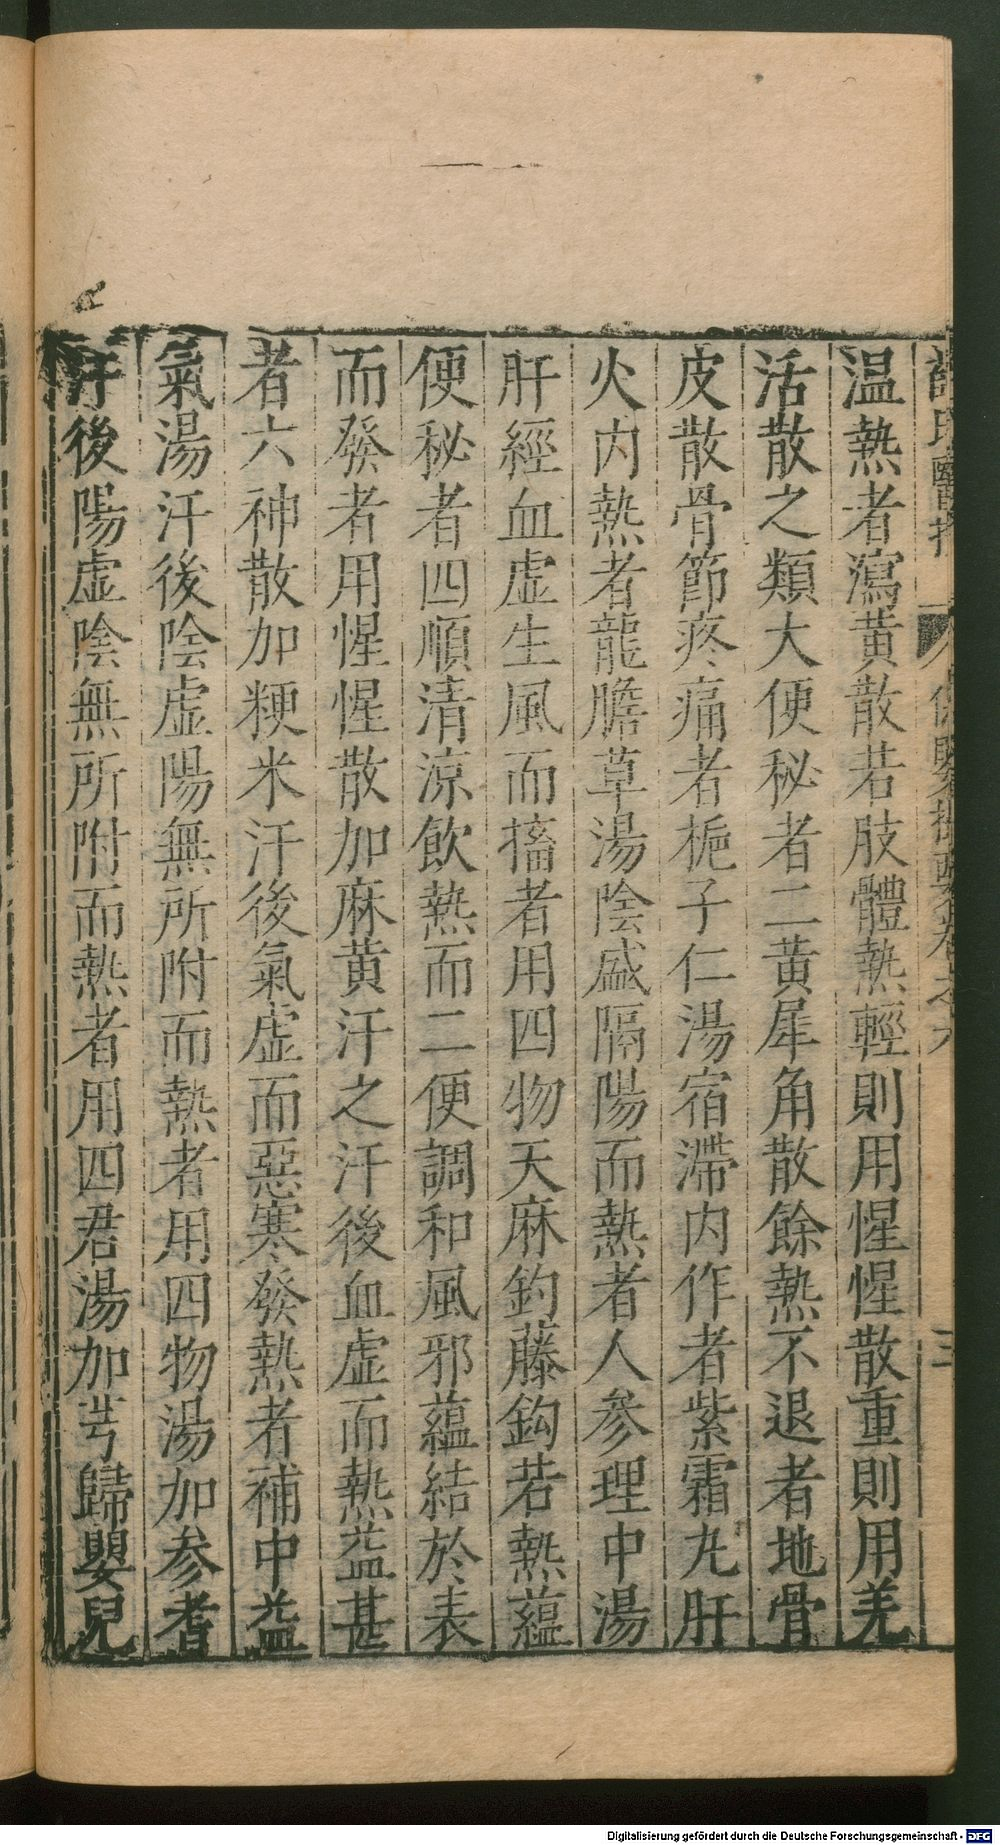 温熱者瀉黄散若肢體熱輕則用惺惺散重則用羌
活散之類大便秘者二黄犀角散餘熱不退者地骨
皮散骨節疼痛者梔子仁湯宿滯内作者紫霜丸肝
火内熱者龍膽草湯陰盛隔陽而熱者人参理中湯
肝經血虚生風而搐者用四物天麻釣藤鈎若熱蘊
便秘者四順清涼飲熱而二便調和風邪蘊結於表
而發者用惺惺散加麻黄汗之汗後血虚而熱益甚
者六神散加粳米汗後氣虚而惡寒發熱者補中益
氣湯汗後陰虚陽無所附而熱者用四物湯加参耆
汗後陽虚陰無所附而熱者用四君湯加芎歸嬰兒
Digitalisierung gefördert durch die Deutsche Forschungsgemeinschaft - DFG